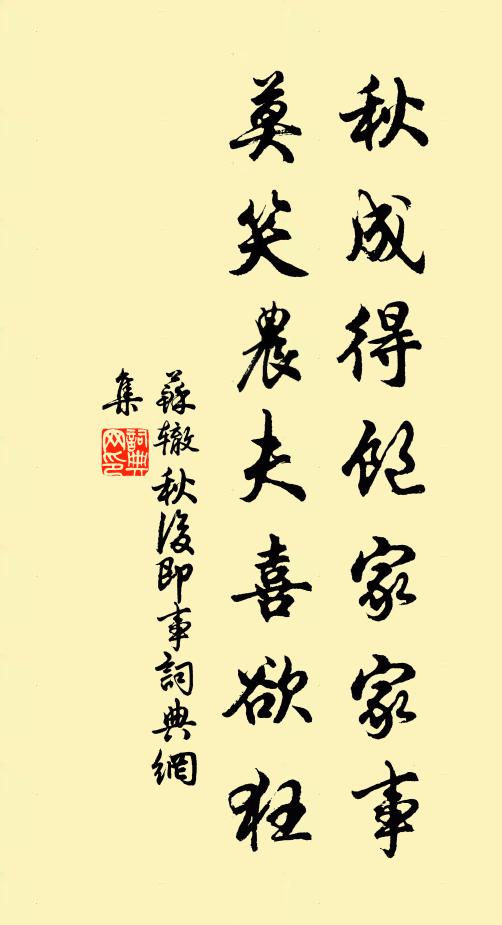 秋成得飽家家事
莫笑農夫喜欲狂
蘇轍秋後即事詞典網
集
詞典网印